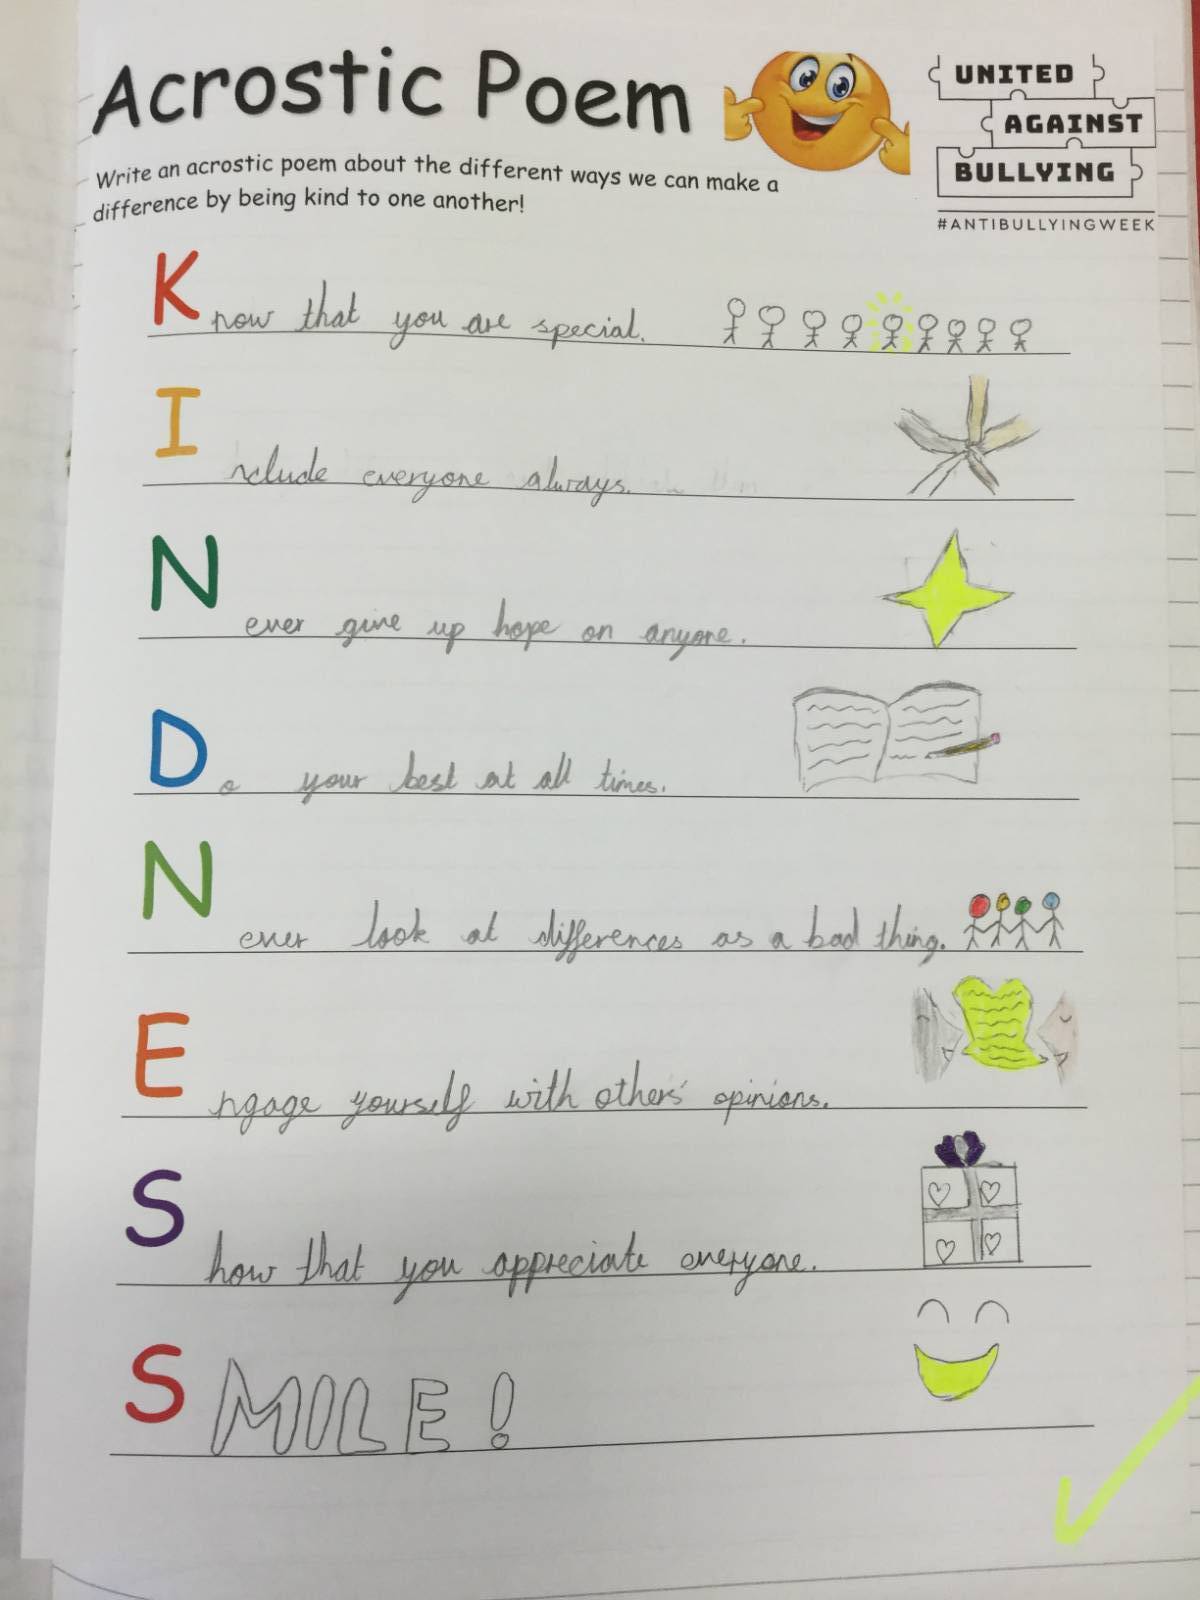 Acrostic Poem
UNITED
AGAINST
BULLYING
#ANTIBULLYINGWEEK
Write an acrostic poem about the different ways we can make a
difference by being kind to one another!
Know that you are special.
Include everyone always.
Never give up hope on anyone.
Do your best at all times.
Never look at differences as a bad thing.
Engage yourself with others' opinions.
Show that you appreciate everyone.
SMILE!